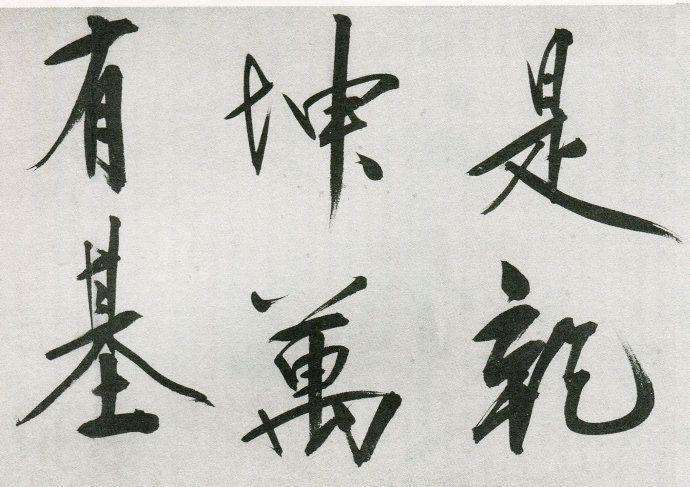 是乾
坤萬
有基